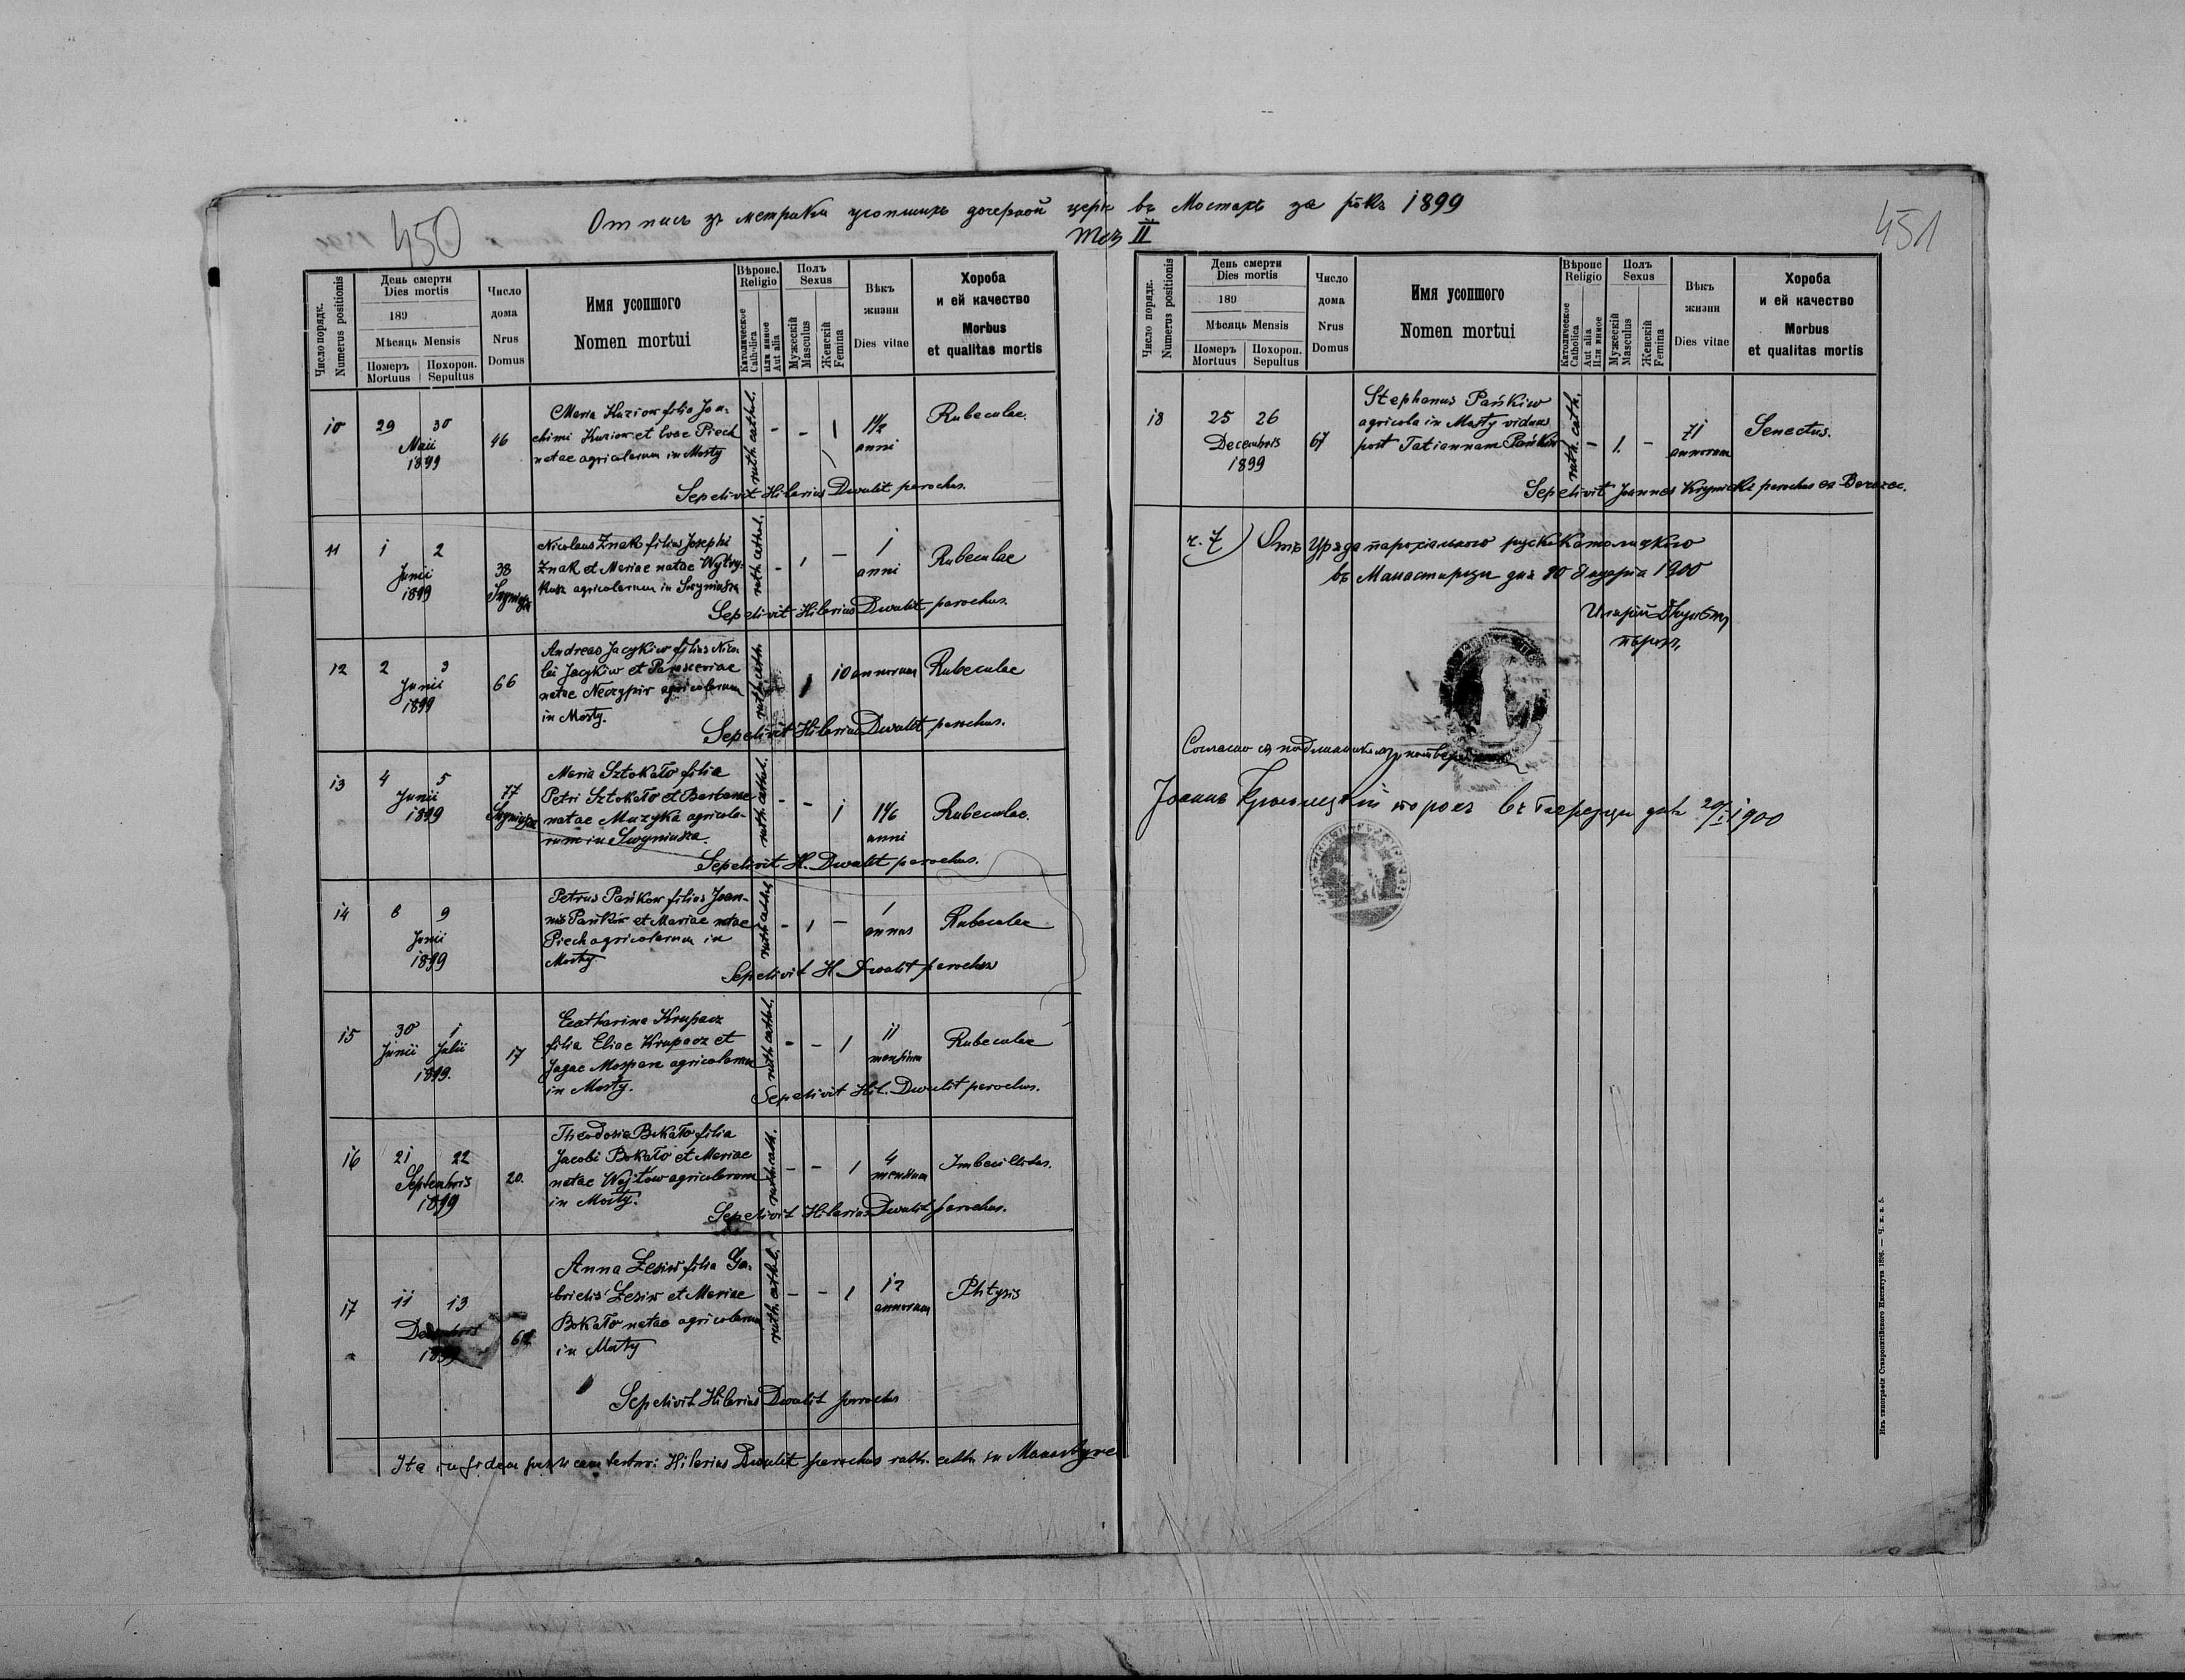 450
451
Отпись зъ метрики усопшихъ дочерной церк въ Мостахъ за рôкъ 1899
II
Число порядк. Numerus positionis
День смерти
Dies mortis
189
Мѣсяць Mensis
Померъ Mortuus
Похорон. Sepultus
Число дома
Nrus Domus
Имя усопшого
Nomen mortui
Вѣроис. Religio
Католическое Catholica
Или инное Aut alia
Полъ Sexus
Мужескій Masculus
Женскій Femina
Вѣкъ жизни
Dies vitae
Хороба
и ей качество
Morbus
et qualitas mortis
10 29 30 Maii 1899 46
Maria Kuziow filia Joa-
chimi Kuziow et Evae Piech
natae agricolarum in Mosty
ruth. cathol. - - 1 1 1/2 anni Rubeculae.
Sepelivit Hilarius Dwulit parochus.
11 1 2 Junii 1899 38
Nicolaus Znak filius Josephi
Znak et Mariae natae Wytry-
kusz agricolarum in
ruth. cathol. - 1 — 1 anni Rubeculae
Sepelivit Hilarius Dwulit parochus.
12 2 3 Junii 1899 66
Andreas Jacykiw filius Nico-
lai Jacykiw et Parasceviae
natae agricolarum
in Mosty.
ruth. cath. 1 10 annorum Rubeculae
Sepelivit Hilarius Dwulit parochus.
13 4 5 Junii 1899 77
Maria Sztokało filia
Petri Sztokało et Barbarae
natae Muzyka agricola-
rum in
ruth. cathol. - - 1 1 1/6 anni Rubeculae.
Sepelivit H. Dwulit parochus.
14 8 9 Junii 1899
Petrus Pańkow filius Joan-
nis Pańkiw et Mariae natae
Piech agricolarum in
Mosty
ruth. cathol. - 1 — 1 annus Rubeculae
Sepelivit H. Dwulit parochus
15 30 Junii 1 Julii 1899. 17
Catharina Krupacz
filia Eliae Krupacz et
agricolarum
in Mosty.
ruth. cathol. - - 1 11 mensium Rubeculae
Sepelivit Hil. Dwulit parochus.
16 21 22 Septembris 1899 20.
Theodosia Bokało filia
Jacobi Bokało et Mariae
natae Wojtow agricolarum
in Mosty.
ruth. cath. - - 1 4 mensium Imbecilitas.
Sepelivit Hilarius Dwulit parochus.
17 11 13 Decembris 1899
Anna Łesiw filia Ga-
brielis Łesiw et Mariae
Bokało natae agricolarum
in Mosty
ruth. cathol. - - 1 12 annorum Phtysis
Sepelivit Hilarius Dwulit parochus
Ita in fidem publicam testor: Hilarius Dwulit parochus ruth. cath. in
Число порядк. Numerus positionis
День смерти
Dies mortis
189
Мѣсяць Mensis
Померъ Mortuus
Похорон. Sepultus
Число дома
Nrus Domus
Имя усопшого
Nomen mortui
Вѣроис Religio
Католическое Catholica
Aut alia Или инное
Полъ Sexus
Мужескій Masculus
Женскій Femina
Вѣкъ жизни
Dies vitae
Хороба
и ей качество
Morbus
et qualitas mortis
18 25 26 Decembris 1899 67
Stephanus Pańkiw
agricola in Mosty viduus
post Tatiannam Pańkiw
ruth. cath. - 1. - 71 annorum Senectus.
Sepelivit Joannes Krynicki parochus ex
ч. 7) Отъ Уряда парохіального руско католицкого
въ Манастирци дня 20 Януарія 1900
Иларій Двулѣтъ
парохъ
Согласно съ подлинникомъ
парохъ въ дня 20/I 1900
Изъ типографіи Ставропигійского Института 1898. — Ч. к. з. 5.